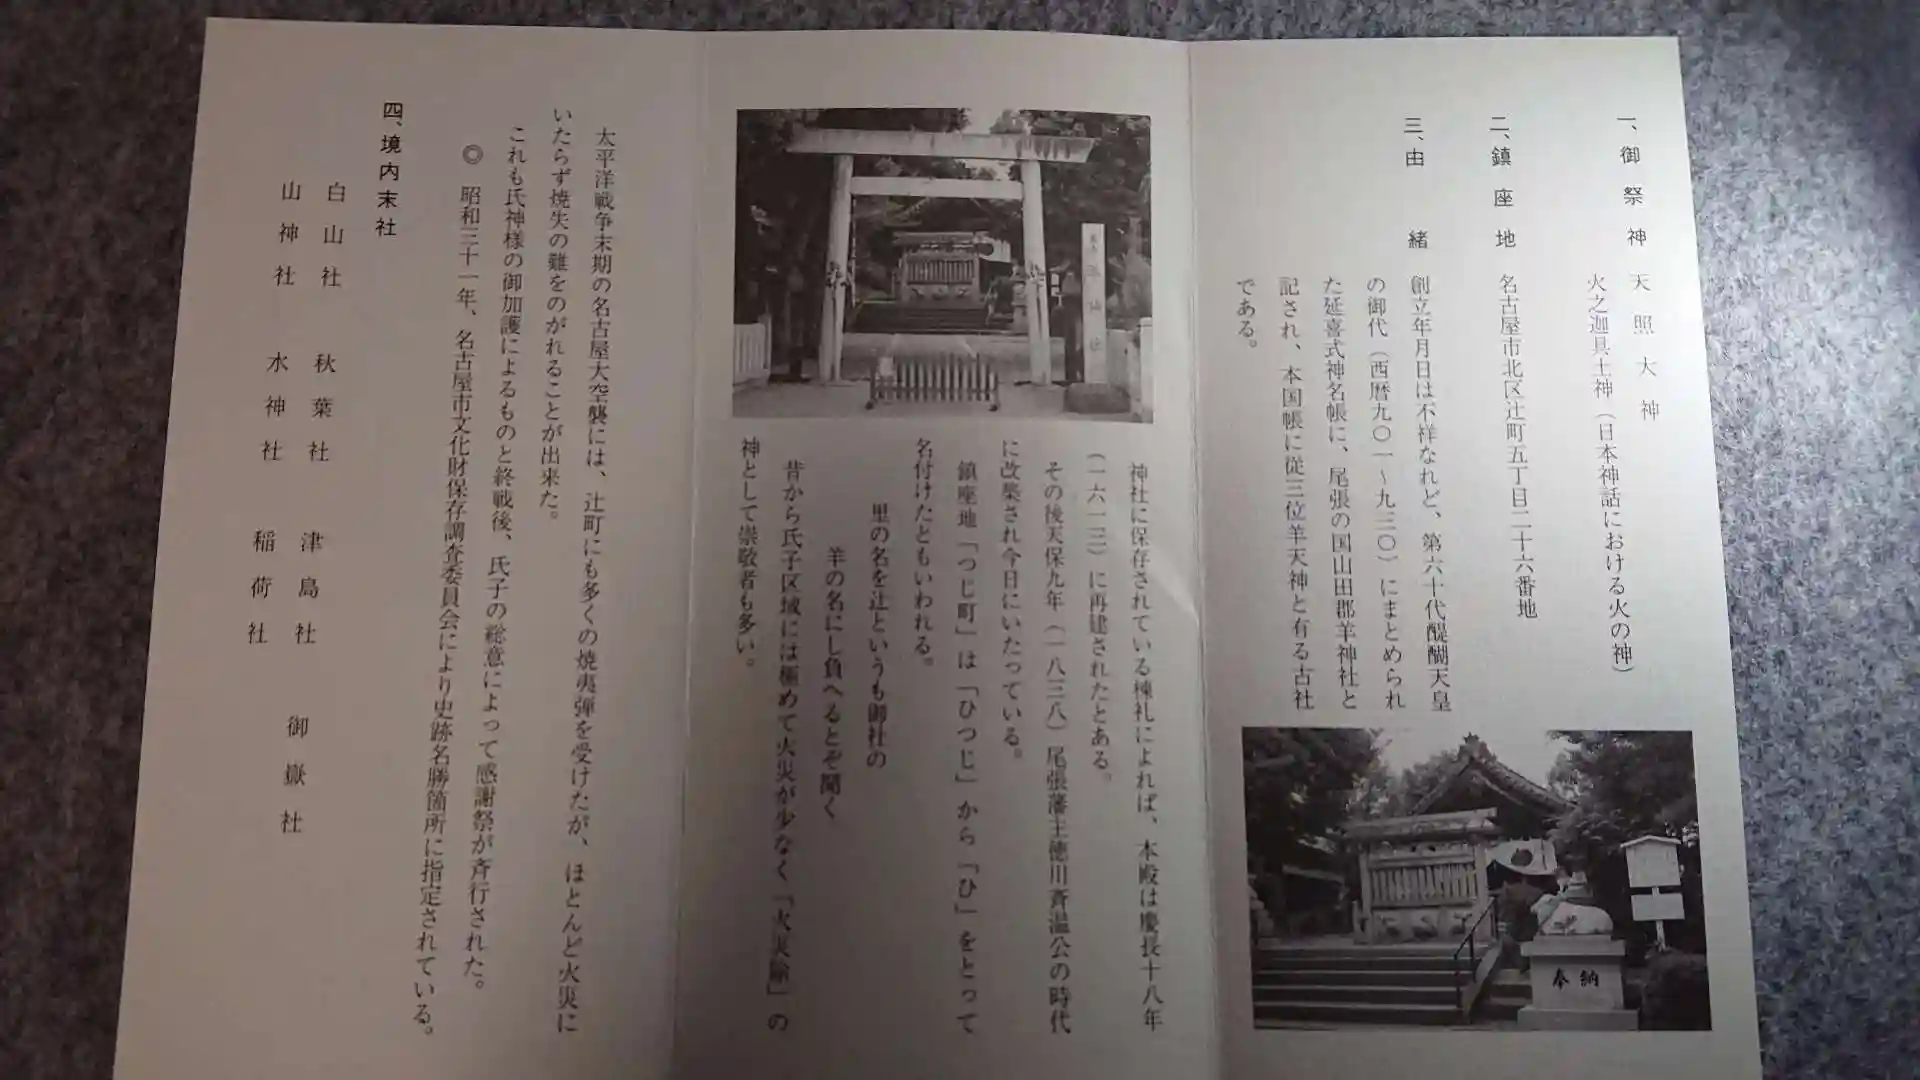 一、御祭神　天照大神
火之迦具土神（日本神話における火の神）
二、鎮座地　名古屋市北区辻町五丁目二十六番地
三、由緒　創立年月日は不祥なれど、第六十代醍醐天皇
の御代（西暦九〇一～九三〇）にまとめられ
た延喜式神名帳に、尾張の国山田郡羊神社と
記され、本国帳に従三位羊天神と有る古社
である。
奉納
羊神社
神社に保存されている棟札によれば、本殿は慶長十八年
（一六一三）に再建されたとある。
その後天保九年（一八三八）尾張藩主徳川斉温公の時代
に改築され今日にいたっている。
鎮座地「つじ町」は「ひつじ」から「ひ」をとって
名付けたともいわれる。
里の名を辻というも御社の
羊の名にし負へるとぞ聞く
昔から氏子区域には極めて火災が少なく「火災除」の
神として崇敬者も多い。
太平洋戦争末期の名古屋大空襲には、辻町にも多くの焼夷弾を受けたが、ほとんど火災に
いたらず焼失の難をのがれることが出来た。
これも氏神様の御加護によるものと終戦後、氏子の総意によって感謝祭が斉行された。
◎　昭和三十一年、名古屋市文化財保存調査委員会により史跡名勝箇所に指定されている。
四、境内末社
白山社　秋葉社　津島社　御嶽社
山神社　水神社　稲荷社